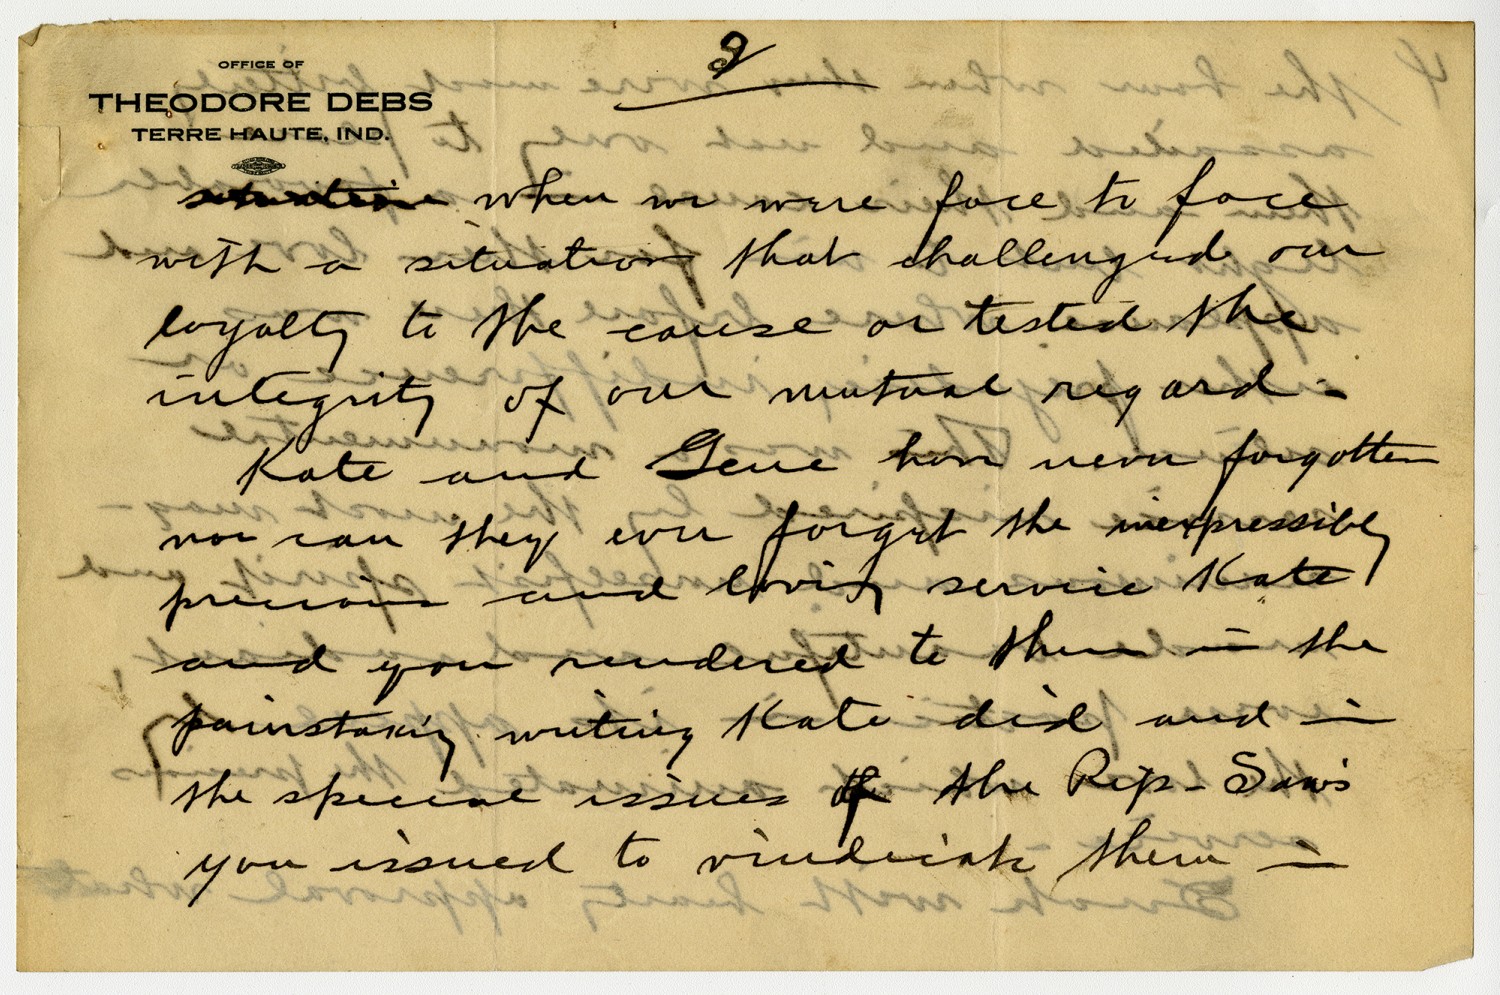 OFFICE OF
THEODORE DEBS
TERRE HAUTE, IND.
2
situation when we were face to face
with a situation that challenged our
loyalty to the cause or tested the
integrity of our mutual regard -
Kate and Gene have never forgotten
nor can they ever forget the inexpressibly
precious and loving service Kate
and you rendered to them in the
painstaking writing Kate did and in
the special issues of the Rip-Saws
you issued to vindicate them in